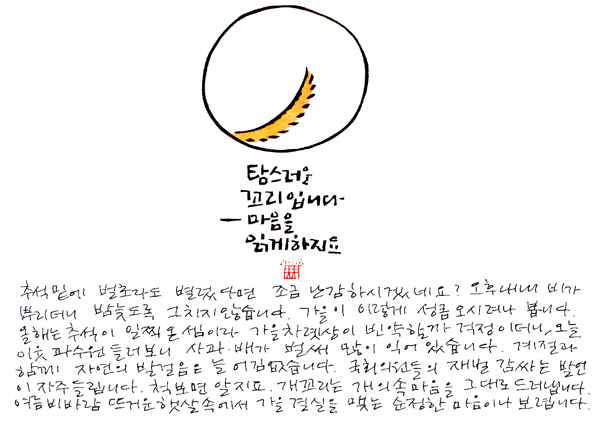 탐스러운
꼬리입니다-
- 마음을
읽게하지요
추석밑에 벌초라도 별렀다면 조금 난감하시겠네요? 오후내내 비가
뿌리더니 밤늦도록 그치지않습니다. 가을이 이렇게 성큼 오시려나 봅니다.
올해는 추석이 일찍 온셈이라 가을차례상이 빈약할까 걱정이더니, 오늘
이웃 과수원 들러보니 사과·배가 벌써 많이 익어 있습니다. 계절과
함께 자연의 발걸음은 늘 어김없습니다. 국회의원들의 재벌 감싸는 발언
이 자주들립니다. 척보면 알지요. 개꼬리는 개의속마음을 그대로드러냅니다.
여름 비바람 뜨거운햇살속에서 가을 결실을 맺는 순정한 마음이나 보렵니다.